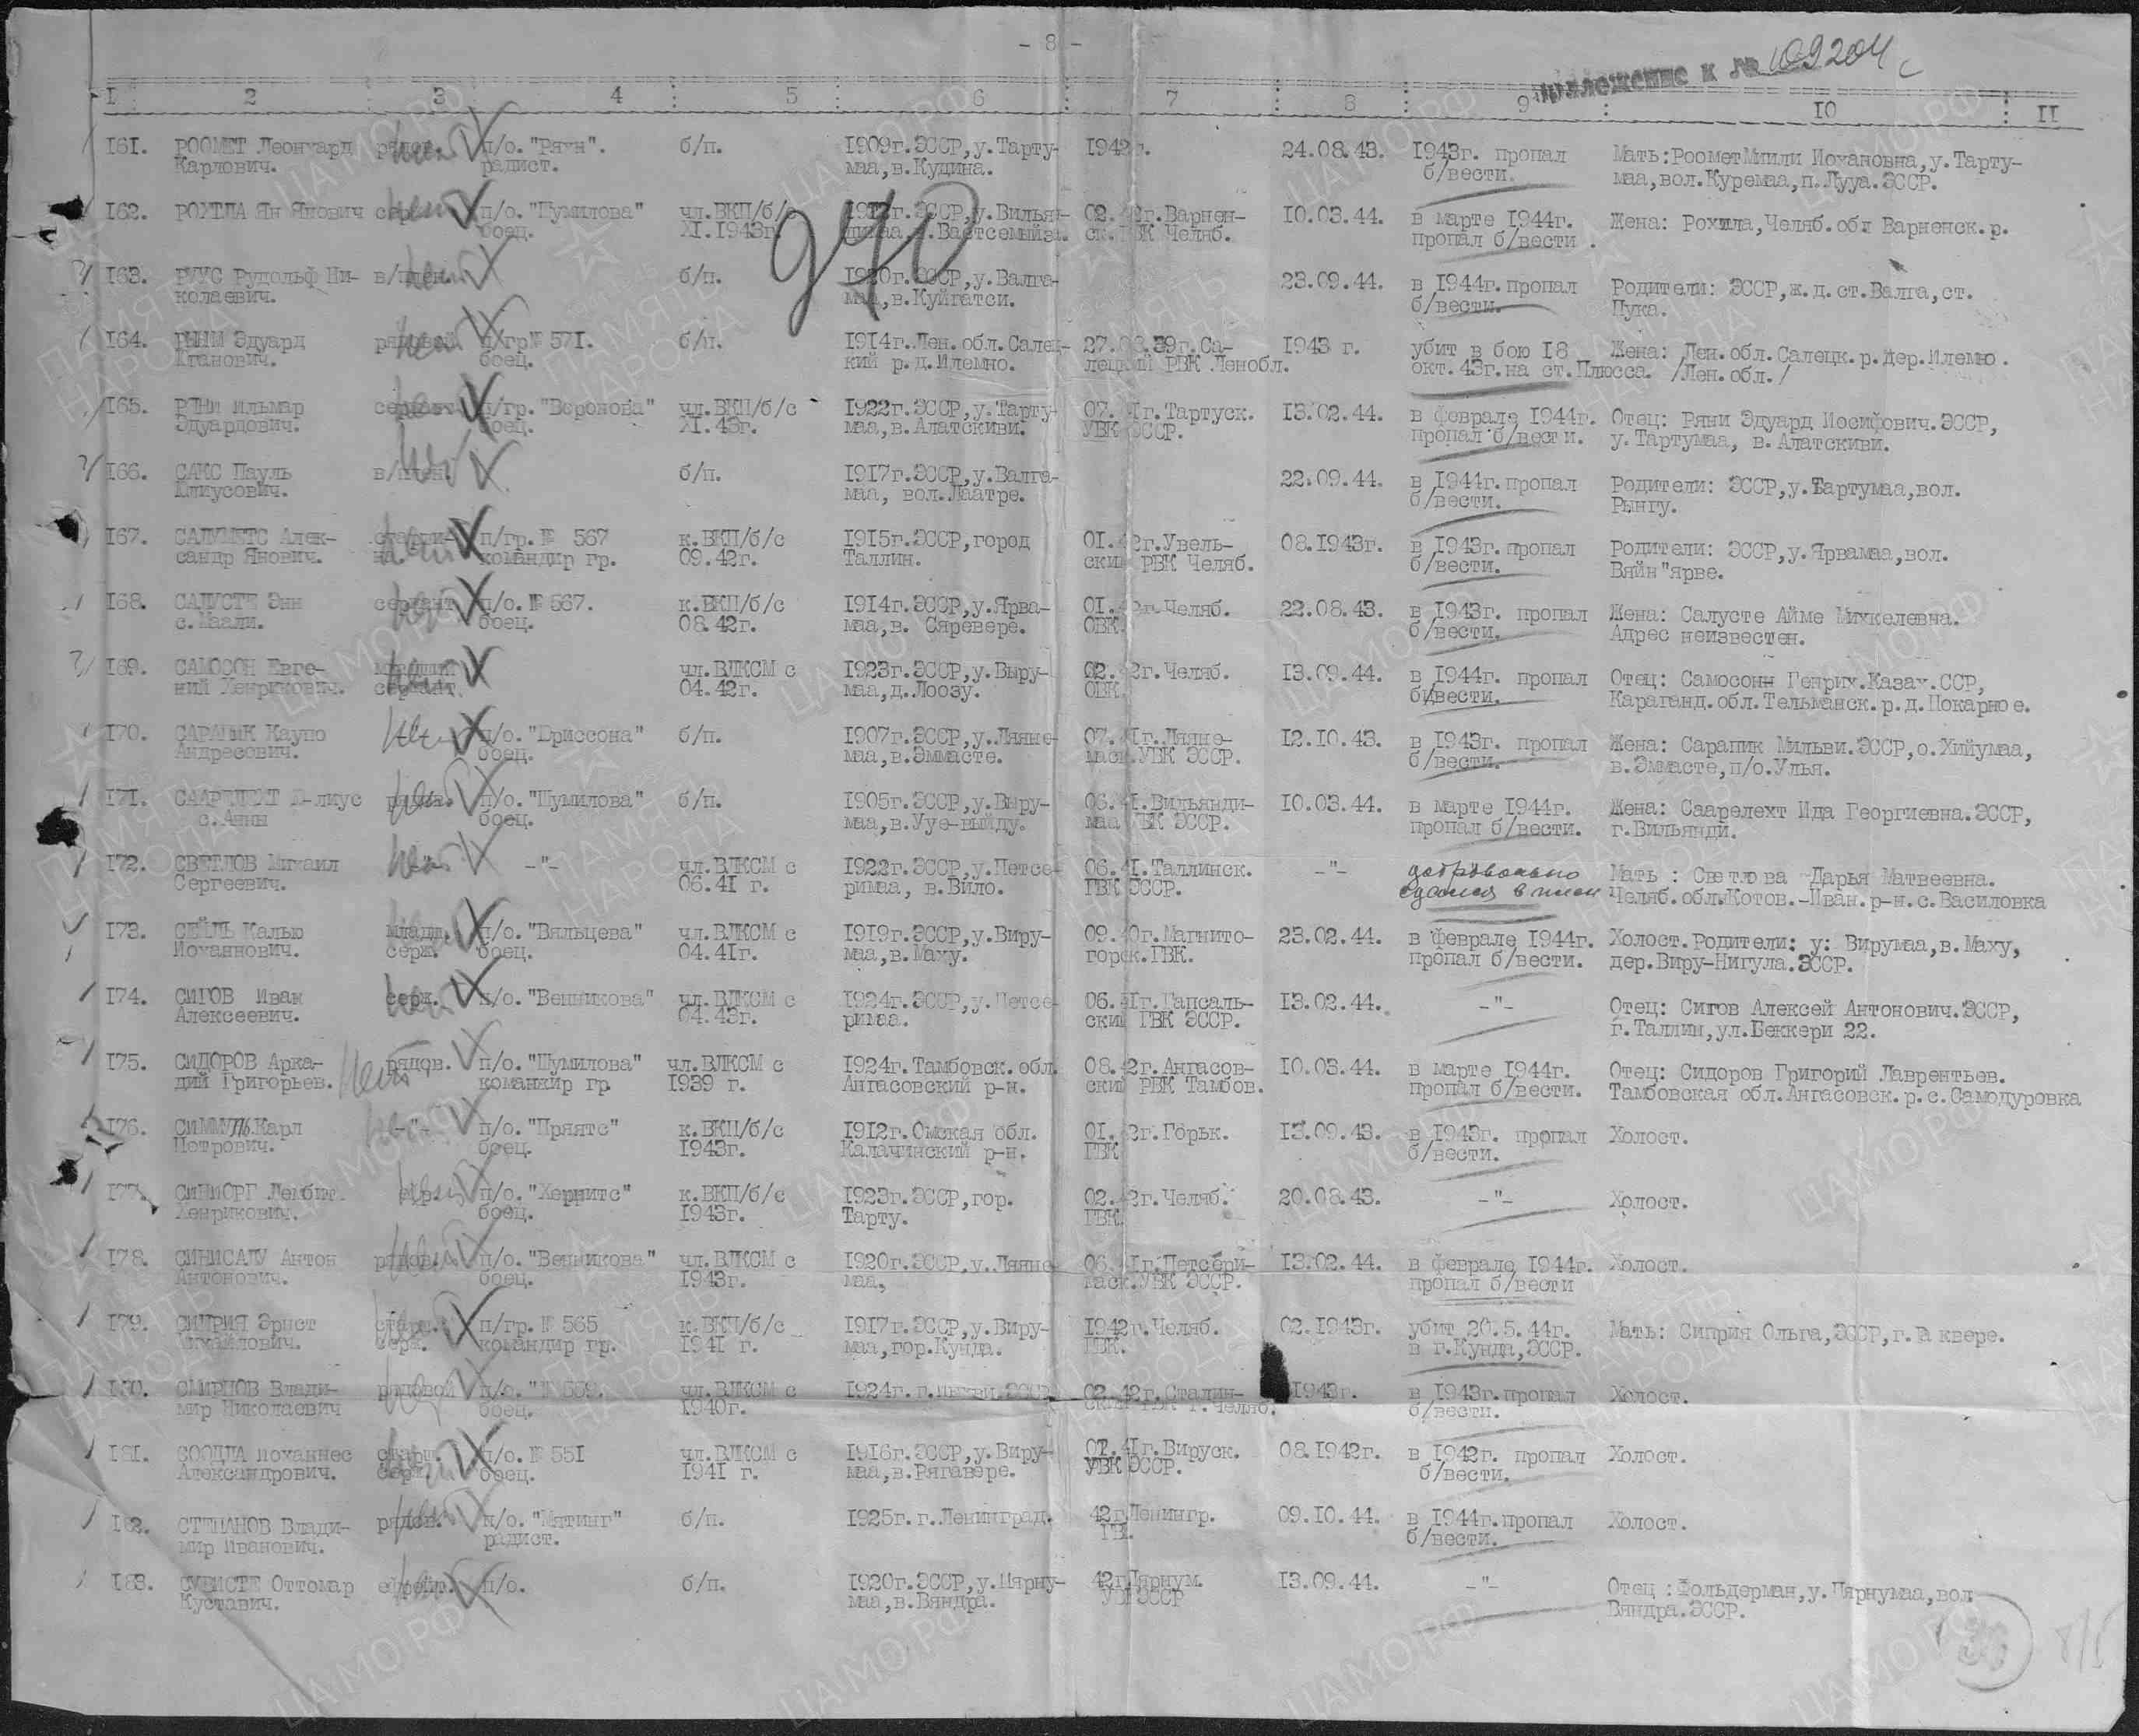 - 8 -
Приложение к № 109204 с
I 2 3 4 5 6 7 8 9 10 II
161. РООМЕТ Леонхард рядов. п/о. "Ряхн". б/п. 1909г.ЭССР,у.Тарту- 1942г. 24.08.43. 1943г. пропал Мать:Роомет Миили Иохановна,у.Тарту-
Карлович. радист. маа,в.Кудина. б/вести. маа,вол.Куремаа,п.Лууа.ЭССР.
940
162. РОХТЛА Ян Янович п/о."Шумилова" чл.ВКП/б/ ЭССР,у.Вильян- 02.42г.Варнен- 10.03.44. в марте 1944г. Жена: Рохтла,Челяб.обл Варненск.р.
боец. XI.1943г. ск.РВК Челяб. пропал б/вести.
163. РУУС Рудольф Ни- в/плен. б/п. ЭССР,у.Валга- 23.09.44. в 1944г.пропал Родители: ЭССР,ж.д.ст.Валга,ст.
колаевич. маа,в.Куйгатси. б/вести. Пука.
164. Эдуард рядовой п/гр№ 571. б/п. 1914г.Лен.обл.Салец- 27. .39г.Са- 1943 г. убит в бою 18 Жена: Лен.обл.Салецк.р.дер.Илемно.
боец. кий р.д.Илемно. лецкий РВК Ленобл. окт.43г.на ст.Плюсса. /Лен.обл./
165. РЯНИ Ильмар сержант п/гр."Воронова" чл.ВКП/б/с 1922г.ЭССР,у.Тарту- 07.41г.Тартуск. 13.02.44. в феврале 1944г. Отец: Ряни Эдуард Иосифович.ЭССР,
Эдуардович. боец. XI.43г. маа,в.Алатскиви. УВК ЭССР. пропал б/вести. у.Тартумаа, в.Алатскиви.
166. САКС Пауль в/плен. б/п. 1917г.ЭССР,у.Валга- 22.09.44. в 1944г.пропал Родители: ЭССР,у.Тартумаа,вол.
Юлиусович. маа, вол.Лаатре. б/вести. Рынгу.
167. САЛУМЕТС Алек- старши- п/гр.№ 567 к.ВКП/б/с 1915г.ЭССР,город 01.42г.Увель- 08.1943г. в 1943г.пропал Родители: ЭССР,у.Ярвамаа,вол.
сандр Янович. на. командир гр. 09.42г. Таллин. ский РВК Челяб. б/вести. Вяйн"ярве.
168. САЛУСТЕ Энн сержант п/о.№ 567. к.ВКП/б/с 1914г.ЭССР,у.Ярва- 01.42г.Челяб. 22.08.43. в 1943г. пропал Жена: Салусте Айме Михкелевна.
с.Маали. боец. 08.42г. маа,в. Сяревере. ОВК. б/вести. Адрес неизвестен.
169. САМОСОН Евге- младший чл.ВЛКСМ с 1923г.ЭССР,у.Выру- 02.42г.Челяб. 13.09.44. в 1944г. пропал Отец: Самосонн Генрих.Казах.ССР,
ний Хенрикович. сержант. 04.42г. маа,д.Лоозу. ОВК. б/вести. Караганд.обл.Тельманск.р.д.Покарное.
170. САРАПИК Каупо п/о."Эриссона" б/п. 1907г.ЭССР,у.Ляяне- 07.41г.Ляяне- 12.10.43. в 1943г. пропал Жена: Сарапик Мильви.ЭССР,о.Хийумаа,
Андресович. боец. маа,в.Эммасте. маск.УВК ЭССР. б/вести. в.Эммасте,п/о.Улья.
171. СААРЕЛЕХТ Ю-лиус рядов. п/о."Шумилова" б/п. 1905г.ЭССР,у.Выру- 06.41.Вильянди- 10.03.44. в марте 1944г. Жена: Саарелехт Ида Георгиевна.ЭССР,
с.Анны боец. маа,в.Ууе-выйду. маа УВК ЭССР. пропал б/вести. г.Вильянди.
172. СВЕТЛОВ Михаил -"- чл.ВЛКСМ с 1922г.ЭССР,у.Петсе- 06.41.Таллинск. -"- добровольно Мать : Светлова Дарья Матвеевна.
Сергеевич. 06.41 г. римаа, в.Вило. ГВК ЭССР. сдался в плен Челяб.обл.Котов.-Иван.р-н.с.Василовка
173. СЕЙЛЬ Калью младш. п/о."Вяльцева" чл.ВЛКСМ с 1919г.ЭССР,у.Виру- 09.40г.Магнито- 23.02.44. в феврале 1944г. Холост.Родители: у: Вирумаа,в.Маху,
Иоханнович. серж. боец. 04.41г. маа,в.Маху. горск.ГВК. пропал б/вести. дер.Виру-Нигула.ЭССР.
174. СИГОВ Иван серж. п/о."Венникова" чл.ВЛКСМ с 1924г.ЭССР,у.Петсе- 06.41г.Гапсаль- 13.02.44. -"- Отец: Сигов Алексей Антонович.ЭССР,
Алексеевич. 04.43г. римаа. ский ГВК ЭССР. г.Таллин,ул.Беккери 22.
175. СИДОРОВ Арка- рядов. п/о."Шумилова" чл.ВЛКСМ с 1924г.Тамбовск.обл. 08.42г.Ангасов- 10.03.44. в марте 1944г. Отец: Сидоров Григорий Лаврентьев.
дий Григорьев. командир гр. 1939 г. Ангасовский р-н. ский РВК Тамбов. пропал б/вести. Тамбовская обл.Ангасовск.р.с.Самодуровка
176. СИММУЛЬ Карл -"- п/о."Пряятс" к.ВКП/б/с 1912г.Омская обл. 01.42г.Горьк. 13.09.43. в 1943г. пропал Холост.
Петрович. боец. 1943г. Калачинский р-н. ГВК б/вести.
177. СИНИОРГ Лембит п/о."Хернитс" к.ВКП/б/с 1923г.ЭССР,гор. 02.42г.Челяб. 20.08.43. -"- Холост.
Хенрикович. боец. 1943г. Тарту. ГВК.
178. СИНИСАЛУ Антон рядов. п/о."Венникова" чл.ВЛКСМ с 1920г.ЭССР,у.Ляяне- 06.41г.Петсери- 13.02.44. в феврале 1944г. Холост.
Антонович. боец. 1943г. маа, маск.УВК ЭССР. пропал б/вести
179. СИПРИЯ Эрнст старш. п/гр.№ 565 к.ВКП/б/с 1917г.ЭССР,у.Виру- 1942г.Челяб. 02.1943г. убит 20.5.44г. Мать: Сиприя Ольга,ЭССР,г.Раквере.
Михайлович. серж. командир гр. 1941 г. маа,гор.Кунда. ГВК. в г.Кунда,ЭССР.
180. СМИРНОВ Влади- рядовой п/о."№ 559. чл.ВЛКСМ с 1924г. 02.42г.Сталин- 1943г. в 1943г.пропал Холост.
мир Николаевич боец. 1940г. ский РВК г.Челяб. б/вести.
181. СООДЛА Иоханнес старш. п/о.№ 551 чл.ВЛКСМ с 1916г.ЭССР,у.Виру- 07.41г.Вируск. 08.1942г. в 1942г. пропал Холост.
Александрович. серж. боец. 1941 г. маа,в.Рягавере. УВК ЭССР. б/вести.
182. СТЕПАНОВ Влади- рядов. п/о."Мятинг" б/п. 1925г.г.Ленинград. 42г.Ленингр. 09.10.44. в 1944г.пропал Холост.
мир Иванович. радист. ГВК. б/вести.
183. СУВИСТЕ Оттомар ефрейт. п/о. б/п. 1920г.ЭССР,у.Пярну- 42г.Пярнум. 13.09.44. -"- Отец :Фольдерман,у.Пярнумаа,вол
Куставич. маа,в.Вяндра. УВК ЭССР Вяндра.ЭССР.